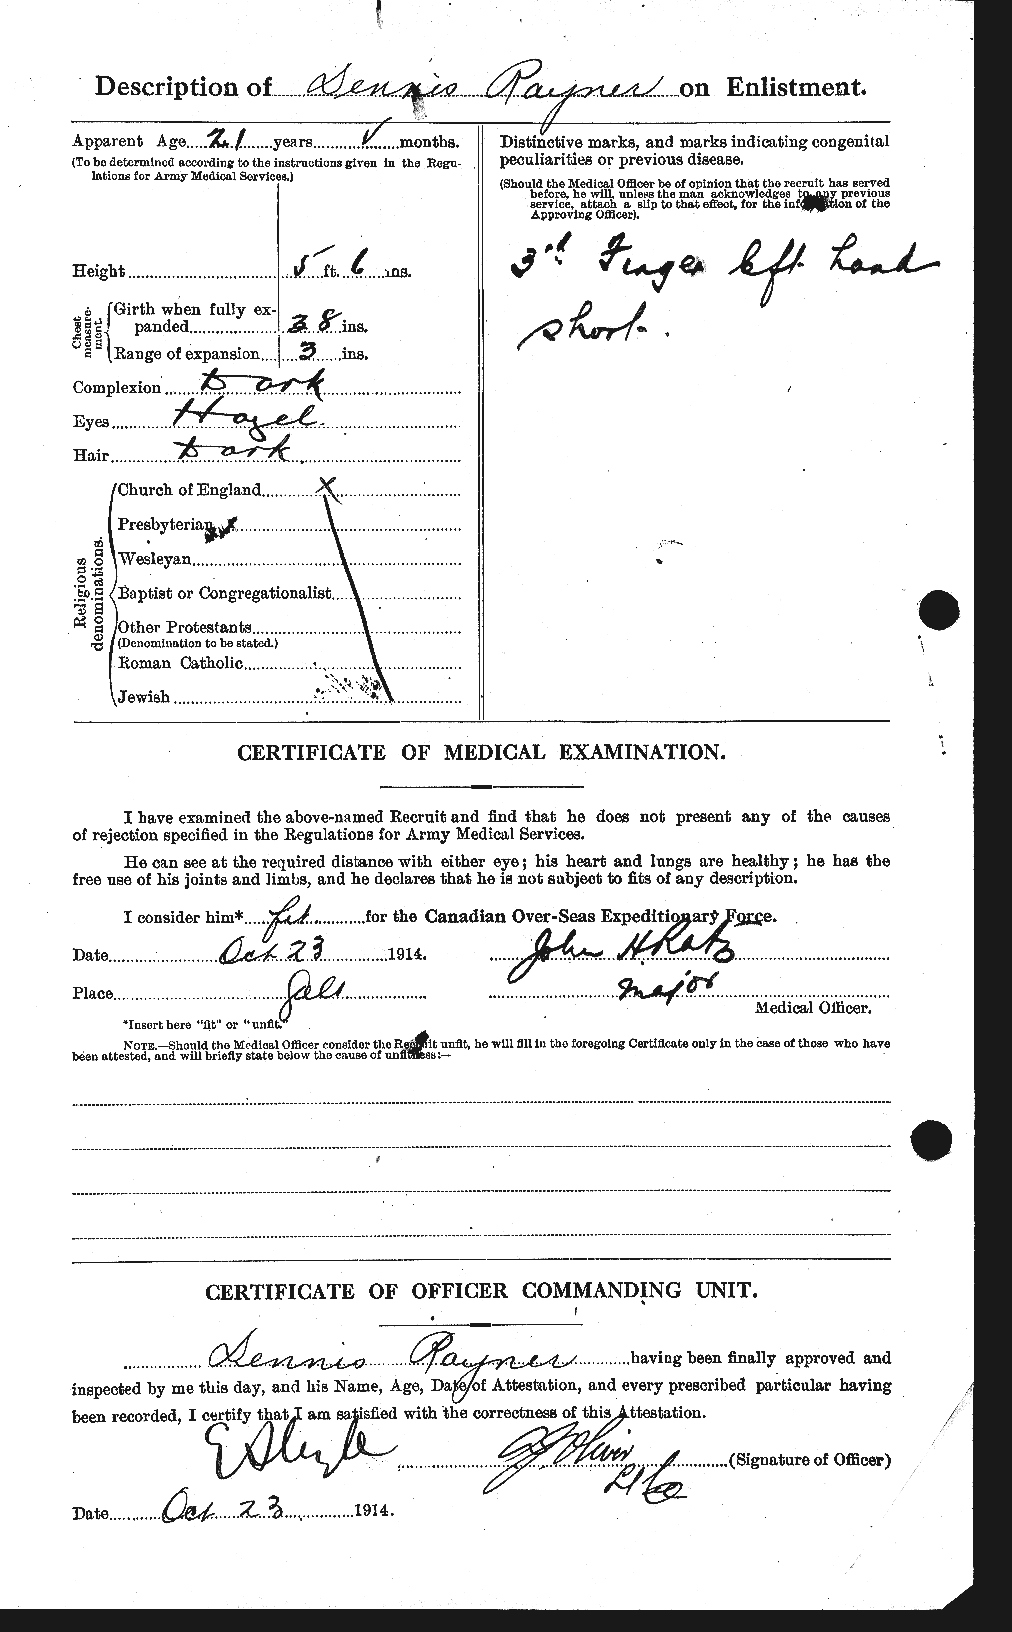 Description of Dennis Rayner on Enlistment.
Apparent Age 21 years months.
(To be determined according to the instructions given in the Regu-
lations for Army Medical Services.)
Height 5 ft. 6 ins.
Chest measure-ment.
Girth when fully ex-
panded 38 ins.
Range of expansion 3 ins.
Complexion Dark
Eyes Hazel.
Hair Dark
Religious denominations.
Church of England X
Presbyterian
Wesleyan
Baptist or Congregationalist
Other Protestants
(Denomination to be stated.)
Roman Catholic
Jewish
Distinctive marks, and marks indicating congenital
peculiarities or previous disease.
(Should the Medical Officer be of opinion that the recruit has served
before, he will, unless the man acknowledges to any previous
service, attach a slip to that effect, for the information of the
Approving Officer).
3rd Finger left hand
short.
CERTIFICATE OF MEDICAL EXAMINATION.
I have examined the above-named Recruit and find that he does not present any of the causes
of rejection specified in the Regulations for Army Medical Services.
He can see at the required distance with either eye; his heart and lungs are healthy; he has the
free use of his joints and limbs, and he declares that he is not subject to fits of any description.
I consider him* fit for the Canadian Over-Seas Expeditionary Force.
Date Oct 23 1914. John H. Ratz
Place Galt Major
Medical Officer.
*Insert here "fit" or "unfit."
NOTE.—Should the Medical Officer consider the Recruit unfit, he will fill in the foregoing Certificate only in the case of those who have
been attested, and will briefly state below the cause of unfitness:—
CERTIFICATE OF OFFICER COMMANDING UNIT.
Dennis Rayner having been finally approved and
inspected by me this day, and his Name, Age, Date of Attestation, and every prescribed particular having
been recorded, I certify that I am satisfied with the correctness of this Attestation.
(Signature of Officer)
Date Oct 23 1914.